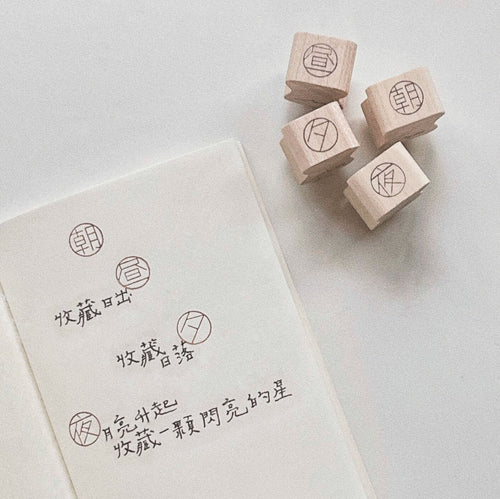 昼
朝
夕
夜
朝
昼
收藏日出
夕
收藏日落
夜月亮升起
收藏一顆閃亮的星